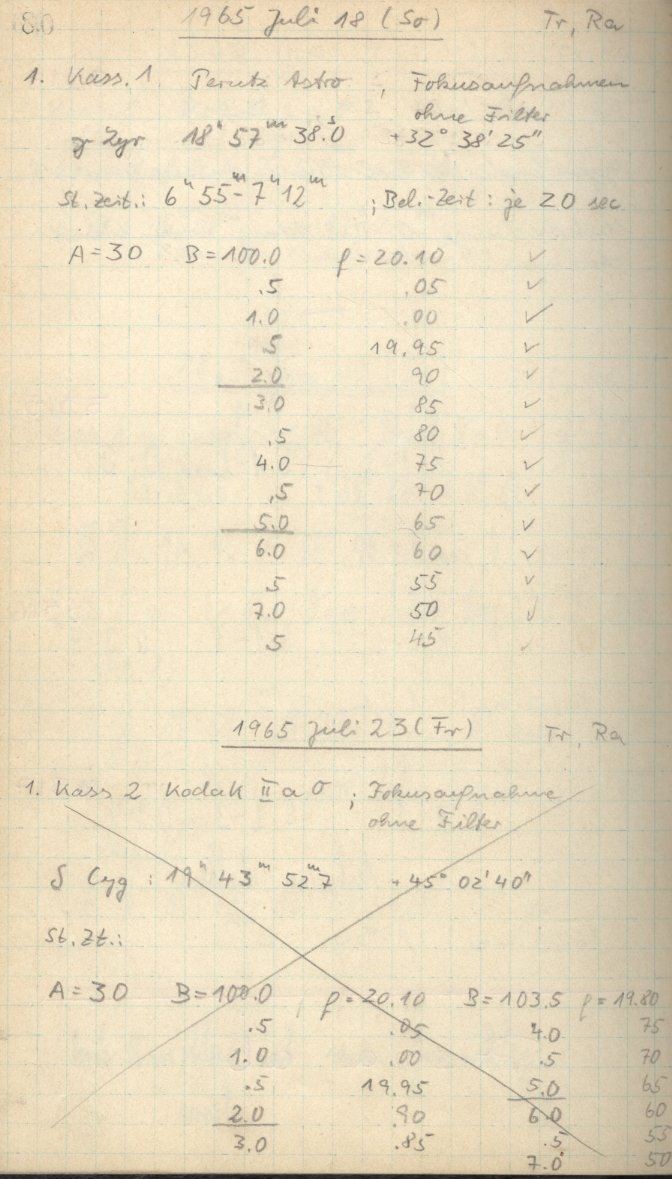 80
1965 Juli 18 (So) Tr, Ra
1. Kass. 1 Perutz Astro , Fokusaufnahmen
ohne Filter
γ Lyr 18ʰ 57ᵐ 38.ˢ0 +32° 38' 25"
St. Zeit.: 6ʰ 55ᵐ- 7ʰ 12ᵐ ; Bel.-Zeit : je 20 sec
A=30 B=100.0 f=20.10 ✓
.5 .05 ✓
1.0 .00 ✓
5 19.95 ✓
2.0 90 ✓
3.0 85 ✓
.5 80 ✓
4.0 75 ✓
.5 70 ✓
5.0 65 ✓
6.0 60 ✓
5 55 ✓
7.0 50 ✓
5 45 ✓
1965 Juli 23 (Fr) Tr, Ra
1. Kass 2 Kodak II a O ; Fokusaufnahme
ohne Filter
δ Cyg : 19ʰ 43ᵐ 52ᵐ7 +45° 02' 40"
St. Zt.:
A=30 B=100.0 f=20.10 B=103.5 f=19.80
.5 .05 4.0 75
1.0 .00 .5 70
.5 19.95 5.0 65
2.0 .90 6.0 60
3.0 .85 .5 55
7.0 50